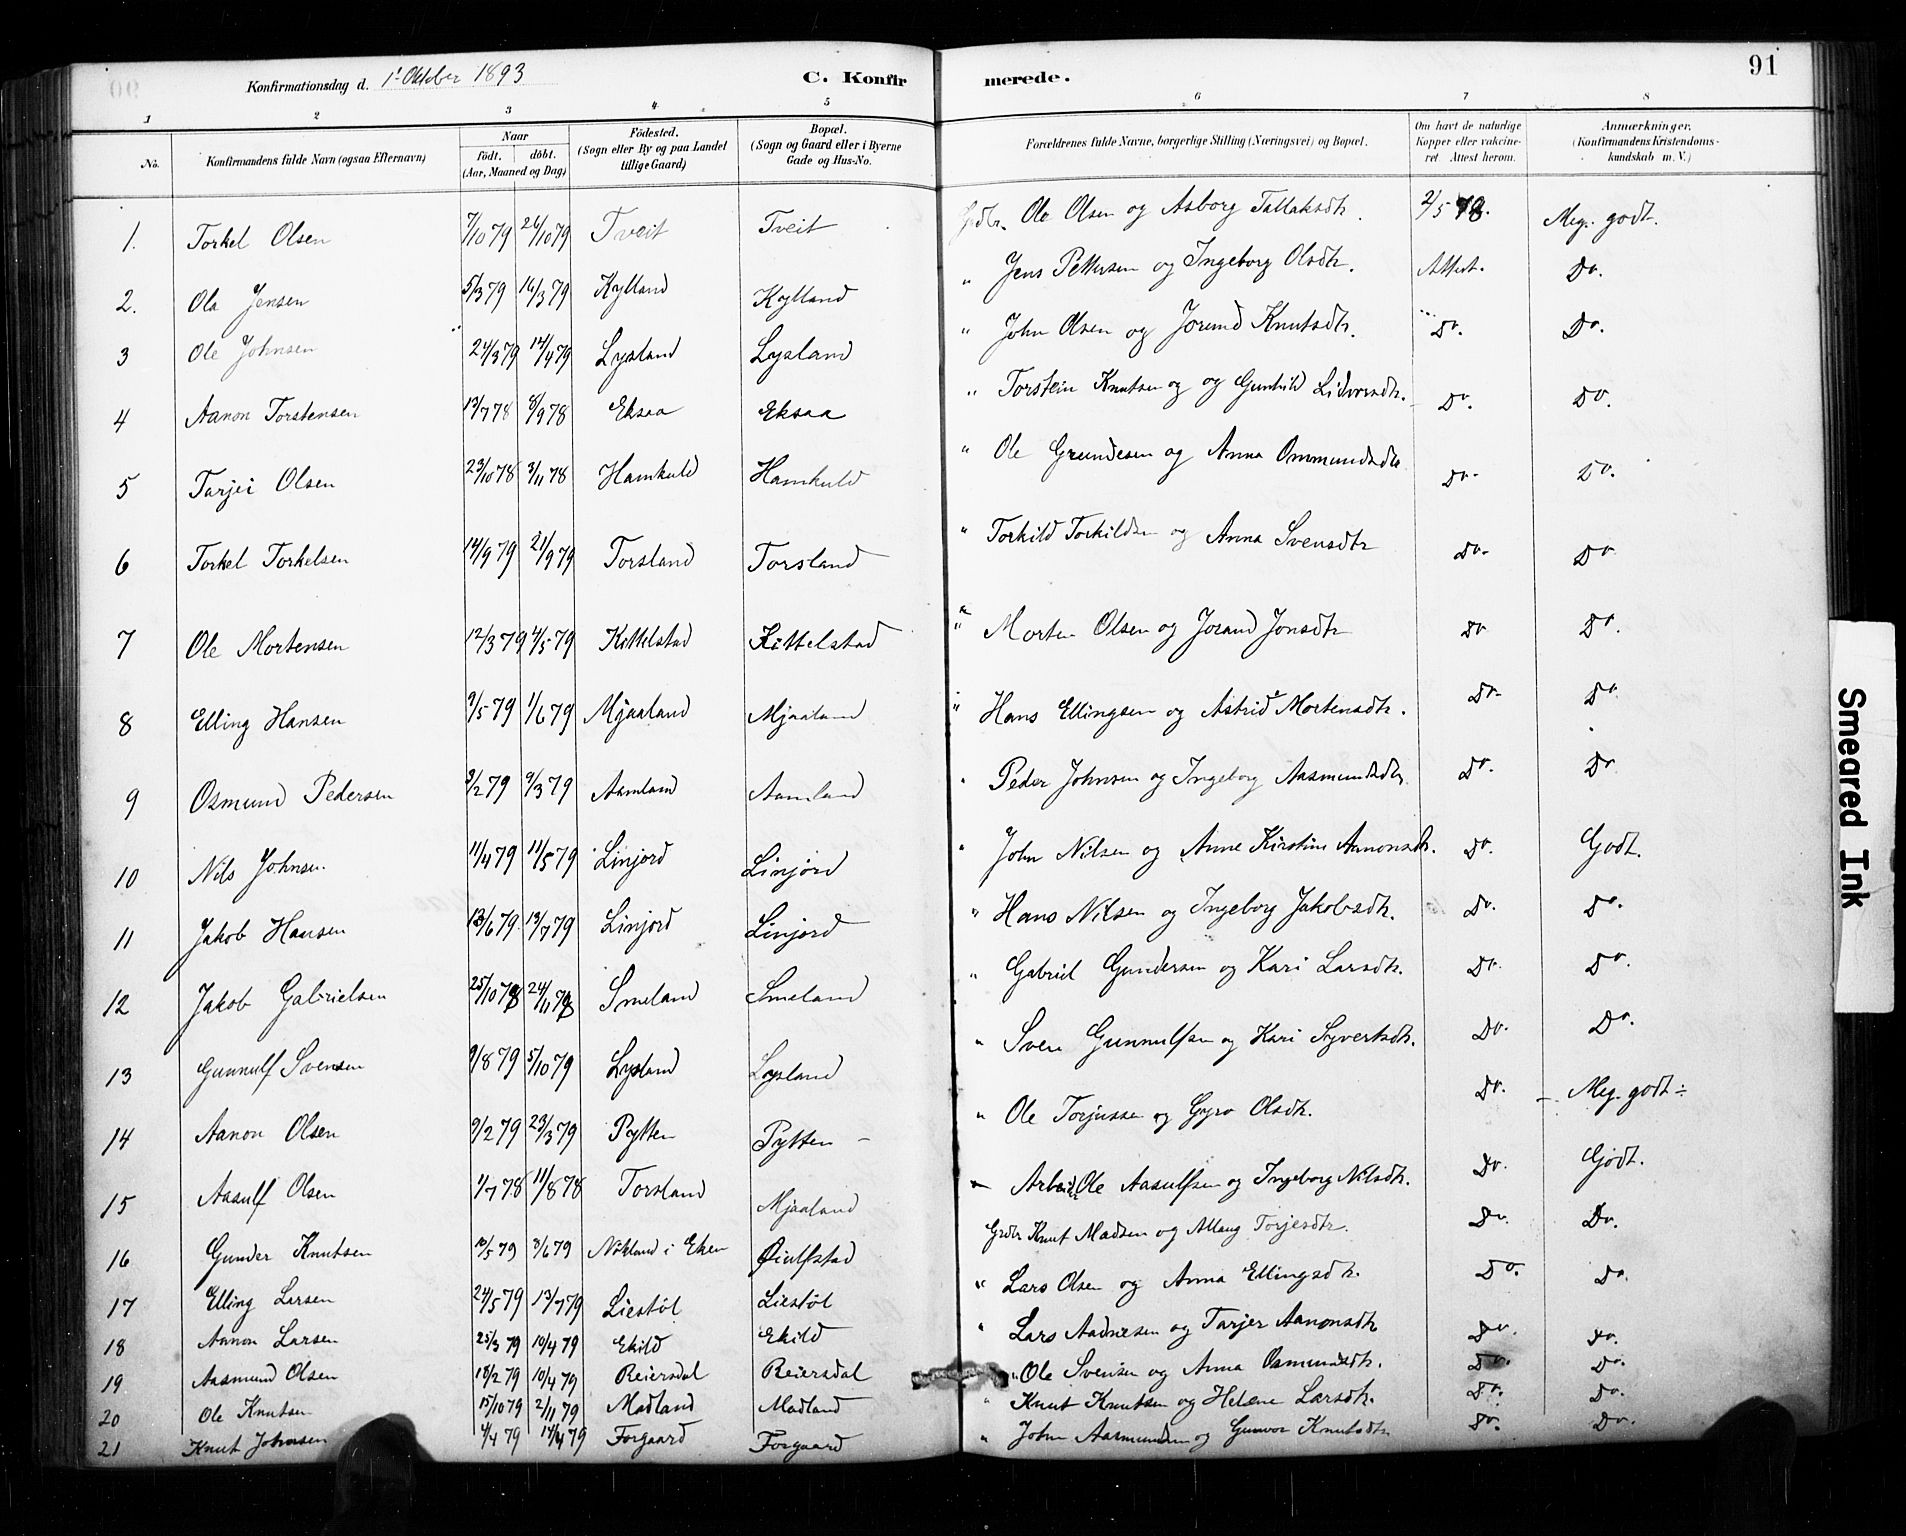 90
Konfirmationsdag d. 1' Oktober 1893 C. Konfir merede. 91
1 2 3 4 5 6 7 8
No. Konfirmandens fulde Navn (ogsaa Efternavn) Naar født, døbt. (Aar, Maaned og Dag) Födested. (Sogn eller By og paa Landet tillige Gaard) Bopæl. (Sogn og Gaard eller i Byerne Gade og Hus-No. Forældrenes fulde Navne, borgerlige Stilling (Næringsvei) og Bopæl. Om havt de naturlige Kopper eller vakcineret. Attest herom. Anmærkninger. (Konfirmandens Kristendomskundskab m. V.)
1. Torkel Olsen 7/10 79 26/10 79 Tveit Tveit Grdbr. Ole Olsen og Asborg Tallaksdtr. 2/5 78. Meg. godt.
2. Ola Jensen 5/3 79 16/3 79 Kylland Kylland " Jens Pettersen og Ingeborg Olsdtr. Attest. Do.
3 Ole Johnsen 24/3 79 14/4 79 Lysland Lysland " John Olsen og Jorund Knutsdtr. Do. Do.
4 Aanon Torstensen 13/7 78 8/9 78 Eksaa Eksaa " Torstein Knutsen og og Gunhild Lidvorsdtr. Do. Do.
5 Tarjei Olsen 23/10 78 3/11 78 Hamkuld Hamkuld " Ole Grundesen og Anna Ommundsdtr Do. Do.
6 Torkel Torkelsen 14/9 79 21/9 79 Torsland Torsland " Torkild Torkildsen og Anna Svensdtr Do. Do
7 Ole Mortensen 12/3 79 4/5 79 Kittelstad Kittelstad " Morten Olsen og Jorand Jonsdtr Do Do.
8 Elling Hansen 9/5 79 1/6 79 Mjaaland Mjaaland " Hans Ellingsen og Astrid Mortensdtr. Do. Do
9 Osmund Pedersen 2/2 79 9/3 79 Aamland Aamland " Peder Johnsen og Ingeborg Aasmundsdtr Do. Do
10 Nils Johnsen. 11/4 79 11/5 79 Linjord Linjord " John Nilsen og Anne Kirstine Aanonsdtr. Do. Godt.
11 Jakob Hansen 13/6 79 13/7 79 Linjord Linjord " Hans Nilsen og Ingeborg Jakobsdtr. Do. Do.
12 Jakob Gabrielsen 25/10 78 24/11 78 Smeland Smeland " Gabriel Gundersen og Kari Larsdtr. Do. Do.
13 Gunnulf Svensen 9/8 79 5/10 79 Lysland Lysland " Sven Gunnulfsen og Kari Syvertsdtr. Do. Do.
14 Aanon Olsen 9/2 79 23/3 79 Pytten Pytten " Ole Torjussen og Gyro Olsdtr. Do. Meg. godt ÷
15 Aasulf Olsen 1/7 78 11/8 78 Torsland Mjaaland Arbeid. Ole Aasulfsen og Ingeborg Nilsdtr. Do. Godt.
16 Gunder Knutsen 10/5 79 3/6 79 Nökland i Eken Øiulfstad Grdbr Knut Madsen og Allaug Torjesdtr. Do. Do.
17 Elling Larsen 24/5 79 13/7 79 Liestöl Liestöl " Lars Olsen og Anna Ellingsdtr. Do. Do.
18 Aanon Larsen 25/3 79 10/4 79 Ekild Ekild " Lars Aadnesen og Tarjer Aanonsdtr Do. Do.
19 Aasmund Olsen 18/2 79 10/4 79 Reiersdal Reiersdal " Ole Svensen og Anna Osmundsdtr. Do. Do.
20 Ole Knutsen 15/10 79 2/11 79 Madland Madland " Knut Knutsen og Helene Larsdtr. Do. Do.
21 Knut Johnsen 4/4 79 14/4 79 Forgaard Forgaard " John Aasmundsen og Gunvor Knutsdtr Do. Do.
Smeared Ink